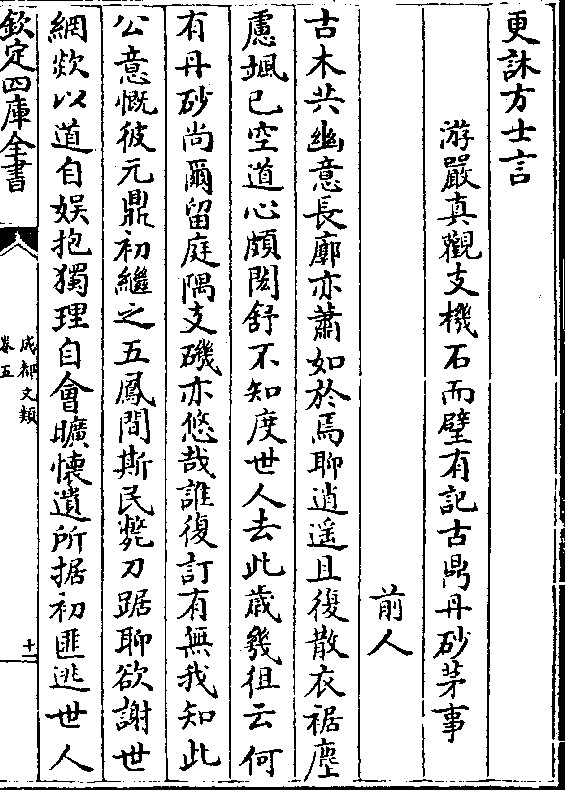 更訹方士言
游嚴真觀支機石而壁有記古鼎丹砂茅事
前人
古木共幽意長廊亦蕭如於焉聊逍遥且復散衣裾塵
慮颯已空道心頗閎舒不知度世人去此歲幾徂云何
有丹砂尚爾留庭隅支磯亦悠哉誰復訂有無我知此
公意慨彼元鼎初繼之五鳳間斯民凳刀踞聊欲謝世
網欻以道自娱抱獨理自會曠懷遺所据初匪逃世人
欽定四庫全書
成都文類
卷五
十二